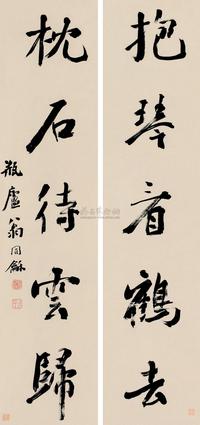 抱琴看鶴去
枕石待雲歸
瓶廬翁同龢